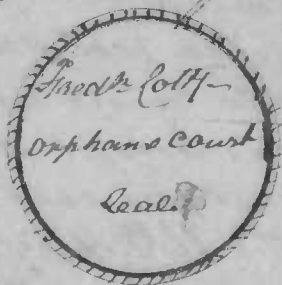 Fredk Coty
orphans court
Seal